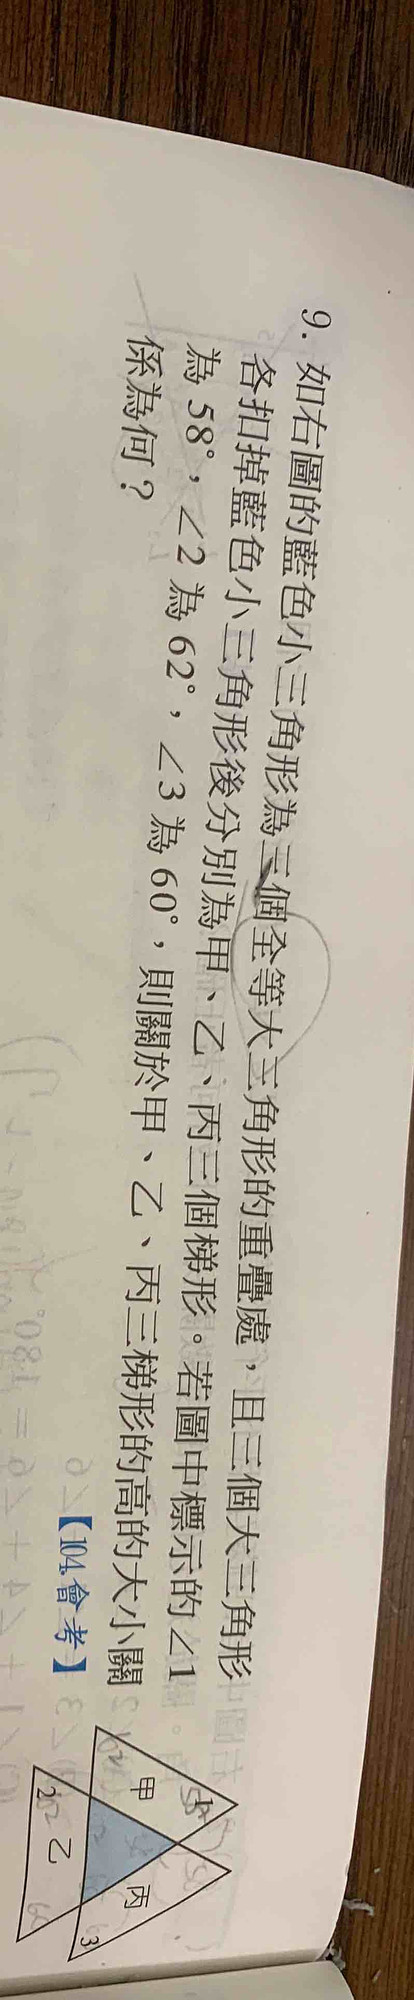 9. 如右圖的藍色小三角形為三個全等大三角形的重疊處，且三個大三角形
各扣掉藍色小三角形後分別為甲、乙、丙三個梯形。若圖中標示的∠1
為 58°，∠2 為 62°，∠3 為 60°，則關於甲、乙、丙三梯形的高的大小關
係為何？
【104.會考】
1
甲
丙
2
乙
3